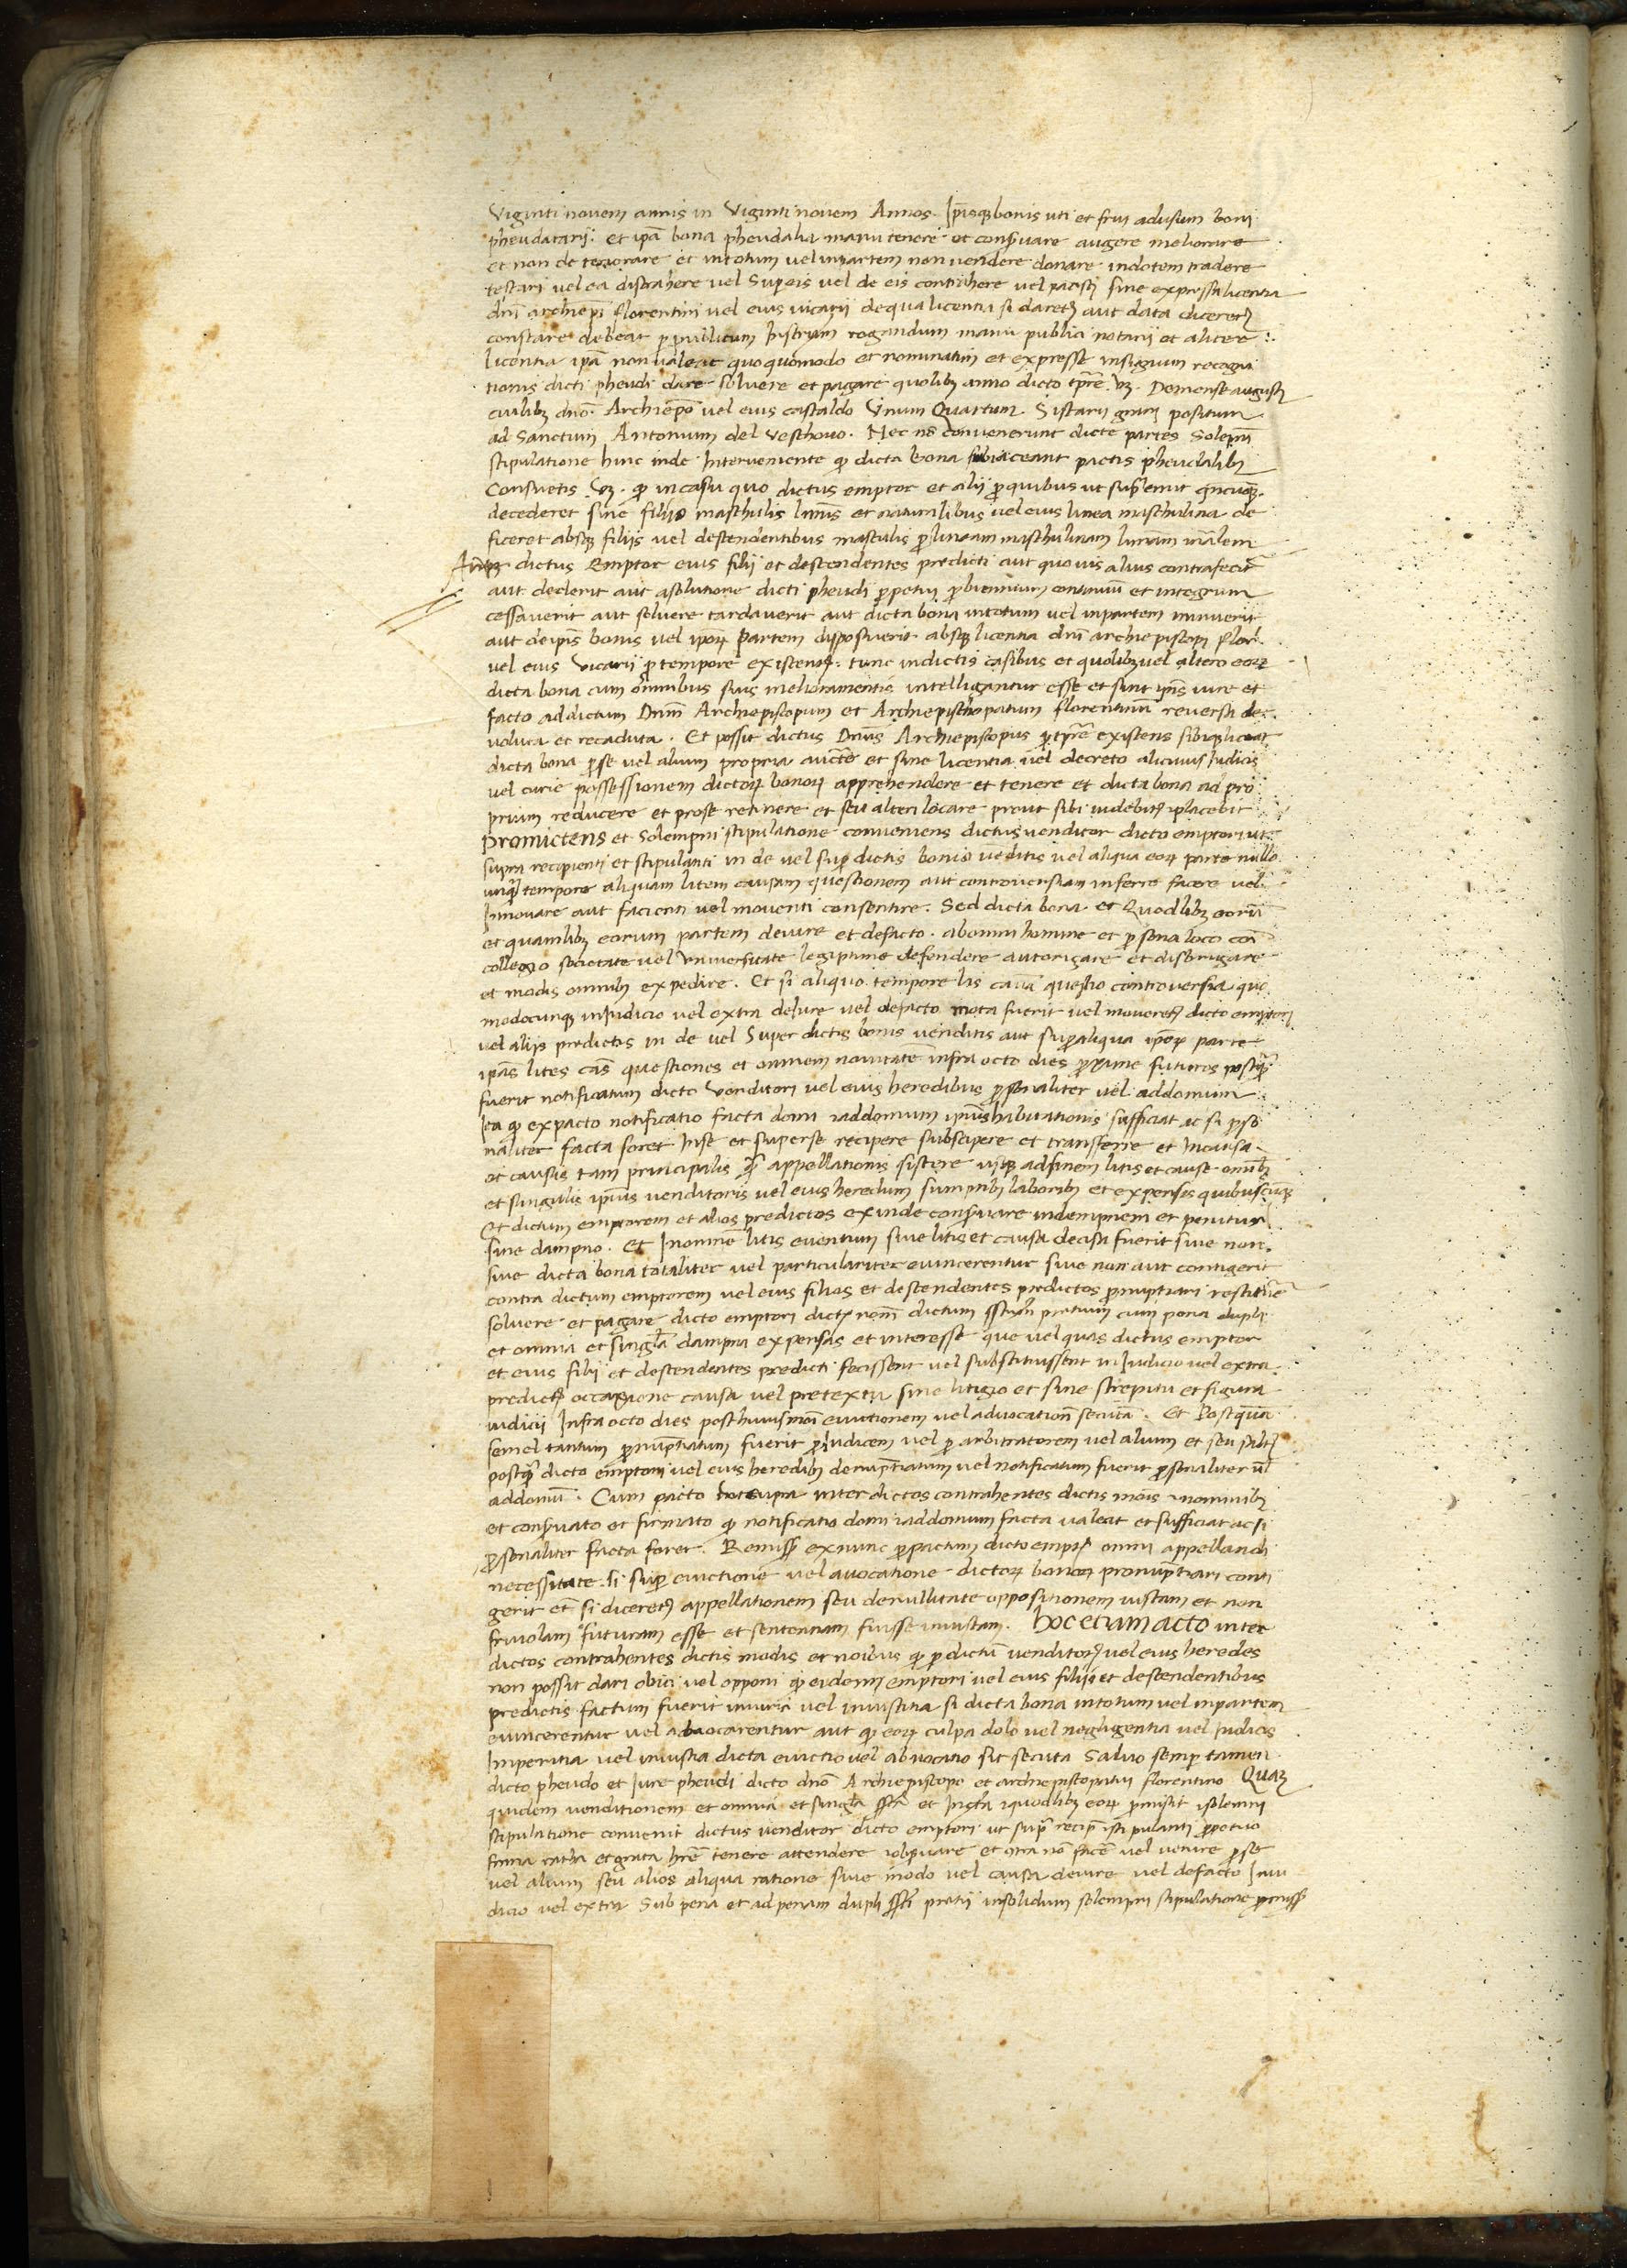 Viginti novem annis in Viginti novem Annos. Ip̄isq bonis uti et frui ad usum boni
pheudatarij. et ip̄a bona pheudalia manu tenere et conservare augere meliorare
et non deteriorare et in totum vel in partem non vendere donare in dotem tradere
testari vel ea distrahere vel Super eis vel de eis contrahere vel pacisci sine expressa licentia
dn̄i archiep̄i florentini vel eius vicarij de qua licentia si daretr aut data diceretr
constare debeat p publicum Instrum rogandum manu publici notarij et aliter
licentia ip̄a non valeat quoquomodo et nominatim et expresse in signum recogni
tionis dicti pheudi dare solvere et pagare quolibz anno dicto tp̄re vz. De mense augusti
cuilibz dn̄o Archiep̄o vel eius castaldo Unum Quartum Sistarij grani positum
ad Sanctum Antonium del veschovo. Nec nō convenerunt dicte partes Solepni
stipulatione hinc inde Interveniente q dicta bona subiaceant pactis pheudalibz
Consuetis vz. q in casu quo dictus emptor et alij p quibus ut sup̄ emit quicunqz
decederet sine filijs maschulis l̄mis et naturalibus vel eius linea maschulina de
ficeret absqz filijs vel descendentibus masculis p lineam maschulinam
dictus Emptor eius filij et descendentes predicti aut quovis alius contrafecit
aut declerit aut a solutione dicti pheudi p petij p biennium continuū et integrum
cessaverit aut solvere tardaverit aut dicta bona in totum vel in partem minuerit
aut de ip̄is bonis vel ipor partem disposuerit absqz licentia dn̄i archiepiscopi flor.
vel eius vicarij p tempore existentis: tunc in dictis casibus et quolibz vel altero eor
dicta bona cum omnibus suis melioramentis intelligantur esse et sint ip̄s iure et
facto ad dictum Dn̄m Archiepiscopum et Archiepischopatum florentinū reversa de
voluta et recaduta. Et possit dictus Dn̄us Archiepiscopus p tp̄re existens sibiq liceat
dicta bona p se vel alium propria aucte et sine licentia vel decreto alicuius Iudicis
vel curie possessionem dictor bonor apprehendere et tenere et dicta bona ad pro
prium reducere et pro se retinere et seu alteri locare prout sibi videbitr placebit
promictens et Solempni stipulatione conveniens dictus venditor dicto emptori ut
supra recipienti et stipulanti in de vel sup dictis bonis venditis vel aliqua eor parte nullo
unq̄ tempore aliquam litem causam questionem aut controversiam inferre facere vel
Innovare aut facienti vel moventi consentire. Sed dicta bona et Quodlibz eorū
et quamlibz eorum partem de iure et de facto. ab omni homine et p sona loco coi
collegio societate vel universitate legiptime defendere autorigare et disbrigare
et modis omnibz expedire. Et si aliquo tempore lis causa questio controversia quo
modocunqz in Iudicio vel extra de Iure vel de facto mota fuerit vel moveretr dicto emptori
vel alijs predictis in de vel Super dictis bonis venditis aut sup aliqua ipor parte
ipas lites cās questiones et omnem novitatē infra octo dies proxime futuros postq̄
fuerit notificatum dicto Venditori vel eius heredibus p sonaliter vel ad domum
Ita q ex pacto notificatio facta domi ad domum ip̄ius habitationis sufficiat ac si p so
naliter facta foret In se et super se recipere subscipere et transferre et In causa
et causis tam principalis q̄ appellationis sistere usqz ad finem litis et cause omibz
et singulis ip̄ius venditoris vel eius heredum sumptibz laboribz et expensis quibuscunqz
Et dictum emptorem et alios predictos exinde conservare indempnem et penitus
sine dampno. Et In omne litis eventum sive litis et causa decisa fuerit sive non
sive dicta bona totaliter vel particulariter evincerentur sive non aut contigerit
contra dictum emptorem vel eius filios et descendentes predictos p nuptiari restituere
solvere et pagare dicto emptori dict nom dictum pretium cum pena dupli
et omnia et singla dampna expensas et interesse que vel quas dictus emptor
et eius filij et descendentes predicti fecissent vel substituissent in Iudicio vel extra
predict occaxione causa vel pretextu sine litigio et sine strepitu et figura
iudicij Infra octo dies post huiusmōi evictionem vel advocationē secutā. Et Postquam
semel tantum p nuptiatum fuerit p Iudicem vel p arbitratorem vel alium et seu
postq̄ dicto emptori vel eius heredibz denuptiatum vel notificatum fuerit p sonaliter ul
ad domū. Cum pacto supra inter dictos contrahentes dictis mōis nominibz
et conservato et firmato q notificatio domi ad domum facta valeat et sufficiat ac si
p sonaliter facta foret. Remiss ex nunc p pactum dicto empt omni appellandi
necessitate si sup evictione vel avocatione dictor bonor pronuptiari conti
gerit et si diceretr appellationem seu de nullitate oppositionem iustam et non
frivolam futuram esse et sententiam fuisse iniustam. hoc etiam acto inter
dictos contrahentes dictis modis et noībus q p dictū venditorē vel eius heredes
non possit dari obici vel opponi q eidem emptori vel eius filijs et descendentibus
predictis factum fuerit iniuria vel iniustitia si dicta bona in totum vel in partem
evincerentur vel advocarentur aut q eor culpa dolo vel negligentia vel Iudicis
Imperitia vel iniustia dicta evictio vel abvocatio sit secuta Salvo semp tamen
dicto pheudo et Iure pheudi dicto dn̄o Archiepiscopo et archiepiscopatui florentino Quam
quidem venditionem et omnia et singla et quodlibz eor promisit solemni
stipulatione convenit dictus venditor dicto emptori ut sup̄ recip̄ stipulanti p petuo
firma ratha et grata hrē tenere attendere observare et contra nō facē vel venire p se
vel alium seu alios aliqua ratione sive modo vel causa de iure vel de facto In iu
dicio vel extra Sub pena et ad penam dupli pretij insolidum solempni stipulatione promiss